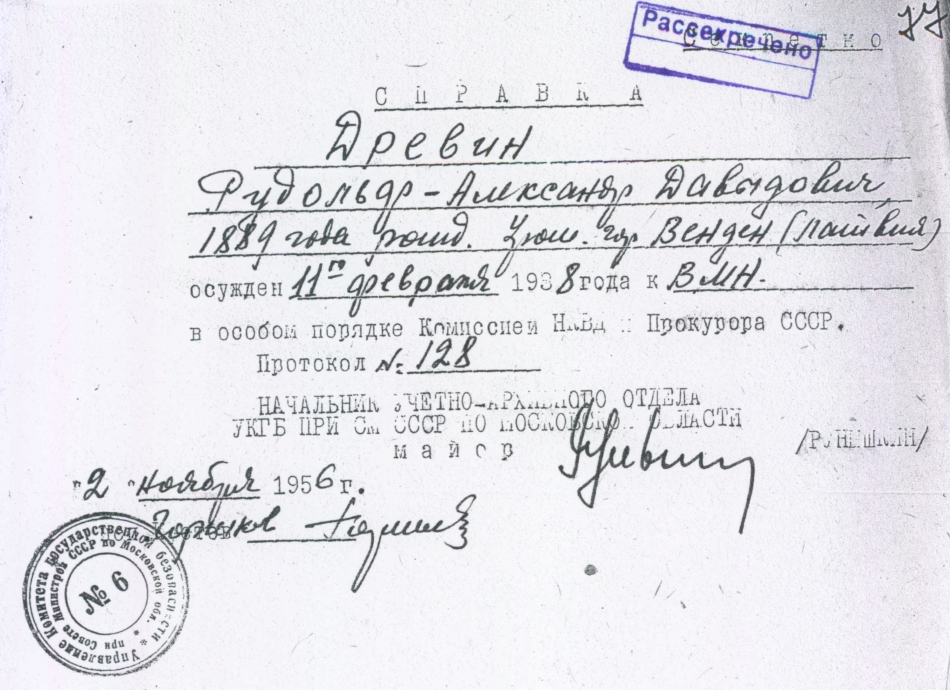 77
Секретно
Рассекречено
СПРАВКА
Древин
Рудольф-Александр Давыдович
1889 года рожд. Урож. гор Венден (Латвия)
осужден 11го февраля 1938 года к ВМН.
в особом порядке Комиссией НКВД и Прокурора СССР.
Протокол №: 128
НАЧАЛЬНИК УЧЕТНО-АРХИВНОГО ОТДЕЛА
УКГБ ПРИ СМ СССР ПО МОСКОВСКОЙ ОБЛАСТИ
майор
"2" ноября 1956 г.
Управление Комитета Государственной безопасности
при Совете Министров СССР по Московской обл.
№ 6